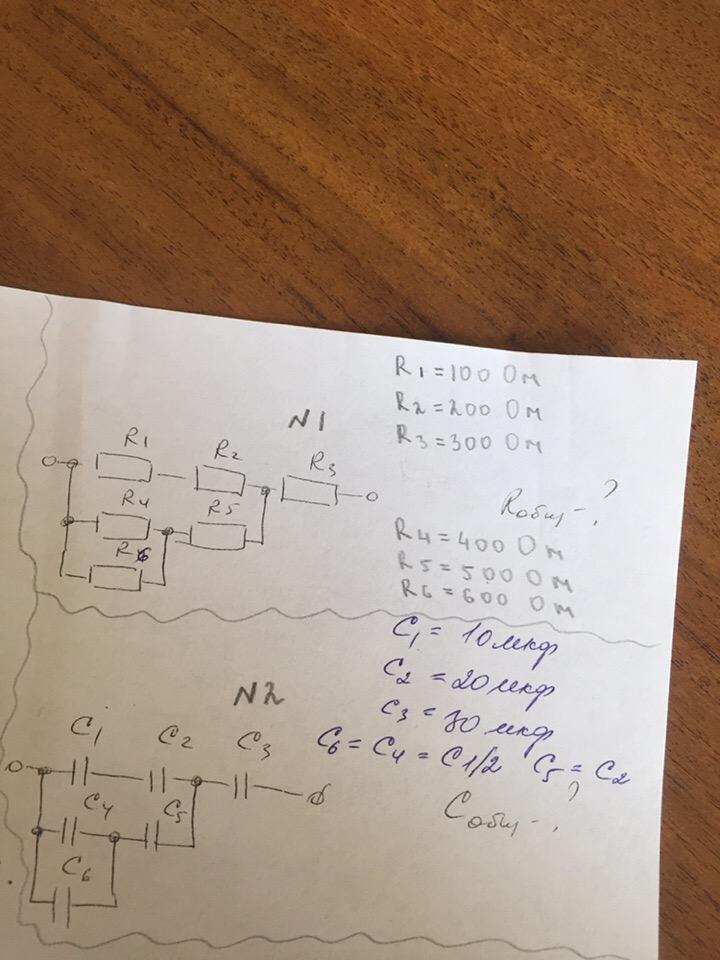 N1
R1 = 100 Ом
R2 = 200 Ом
R3 = 300 Ом
R1 R2 R3
R4 R5
R6
Rобщ - ?
R4 = 400 Ом
R5 = 500 Ом
R6 = 600 Ом
N2
C1 = 10 мкф
C2 = 20 мкф
C3 = 30 мкф
C6 = C4 = C1/2 C5 = C2
C1 C2 C3
C4 C5
C6
Cобщ - ?